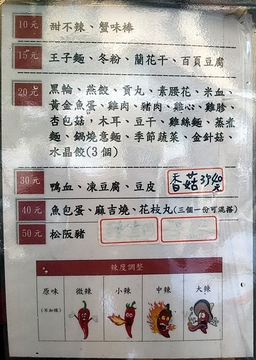 10元 甜不辣、蟹味棒
15元 王子麵、冬粉、蘭花干、百頁豆腐
20元 黑輪、燕餃、貢丸、素腰花、米血、
黃金魚蛋、雞肉、豬肉、雞心、雞胗、
杏包菇，木耳、豆干、雞絲麵、蒸煮
麵、鍋燒意麵、季節蔬菜、金針菇、
水晶餃(3個)
30元 鴨血、凍豆腐、豆皮 香菇35元
40元 魚包蛋、麻吉燒、花枝丸(三個一份可混搭)
50元 松阪豬
辣度調整
原味 微辣 小辣 中辣 大辣
(不加辣)